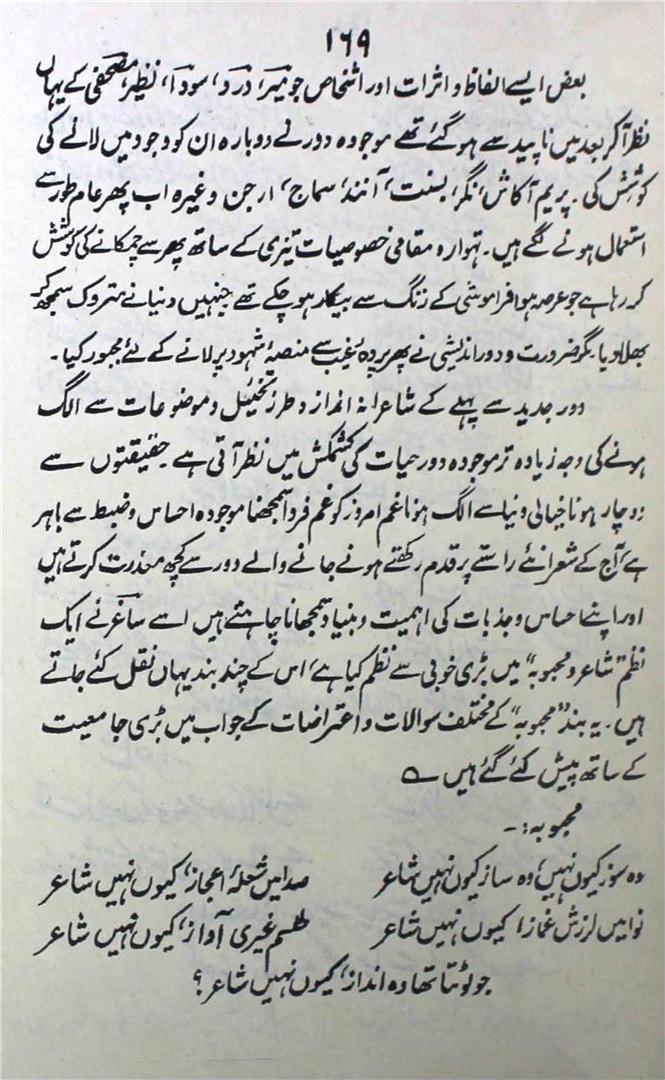 ۱۶۹
بعض ایسے الفاظ و اثرات اور اشخاص جو میر، درد، سودا، نظیر، مصحفی کے یہاں
نظر آکر بعد میں ناپید سے ہو گئے تھے موجودہ دور نے دوبارہ ان کو وجود میں لانے کی
کوشش کی۔ پریم آکاش، نگر، بسنت، آنند، سماج، ارجن وغیرہ اب پھر عام طور سے
استعمال ہونے لگے ہیں۔ تہوارہ مقامی خصوصیات تیزی کے ساتھ پھر سے چمکانے کی کوشش
کر رہا ہے جو عرصہ ہوا فراموشی کے زنگ سے بیکار ہو چکے تھے جنہیں دنیا نے متروک سمجھ کر
بھلا دیا۔ مگر ضرورت و دور اندیشی نے پھر پردہ غیب سے منصۂ شہود پر لانے کے لئے مجبور کیا۔
دور جدید سے پہلے کے شاعرانہ انداز و طرز تخیل و موضوعات سے الگ
ہونے کی وجہ زیادہ تر موجودہ دور حیات کی کشمکش میں نظر آتی ہے۔ حقیقتوں سے
دوچار ہونا خیالی دنیا سے الگ ہونا غم امروز کو غم فردا سمجھنا موجودہ احساس و ضبط سے باہر
ہے، آج کے شعرا نئے راستے پر قدم رکھتے ہوئے جانے والے دور سے کچھ معذرت کرتے ہیں
اور اپنے احساس و جذبات کی اہمیت و بنیاد سمجھانا چاہتے ہیں اسے ساغر نے ایک
نظم "شاعر و محبوبہ" میں بڑی خوبی سے نظم کیا ہے، اس کے چند بند یہاں نقل کئے جاتے
ہیں۔ یہ بند "محبوبہ" کے مختلف سوالات و اعتراضات کے جواب میں بڑی جامعیت
کے ساتھ پیش کئے گئے ہیں ؎
محبوبہ:۔
وہ سوز کیوں نہیں، وہ ساز کیوں نہیں شاعر صدا میں شعلۂ اعجاز، کیوں نہیں شاعر
نوا میں لرزش غماز، کیوں نہیں شاعر طلسم غیری آواز، کیوں نہیں شاعر
جو لوٹتا تھا وہ انداز، کیوں نہیں شاعر؟